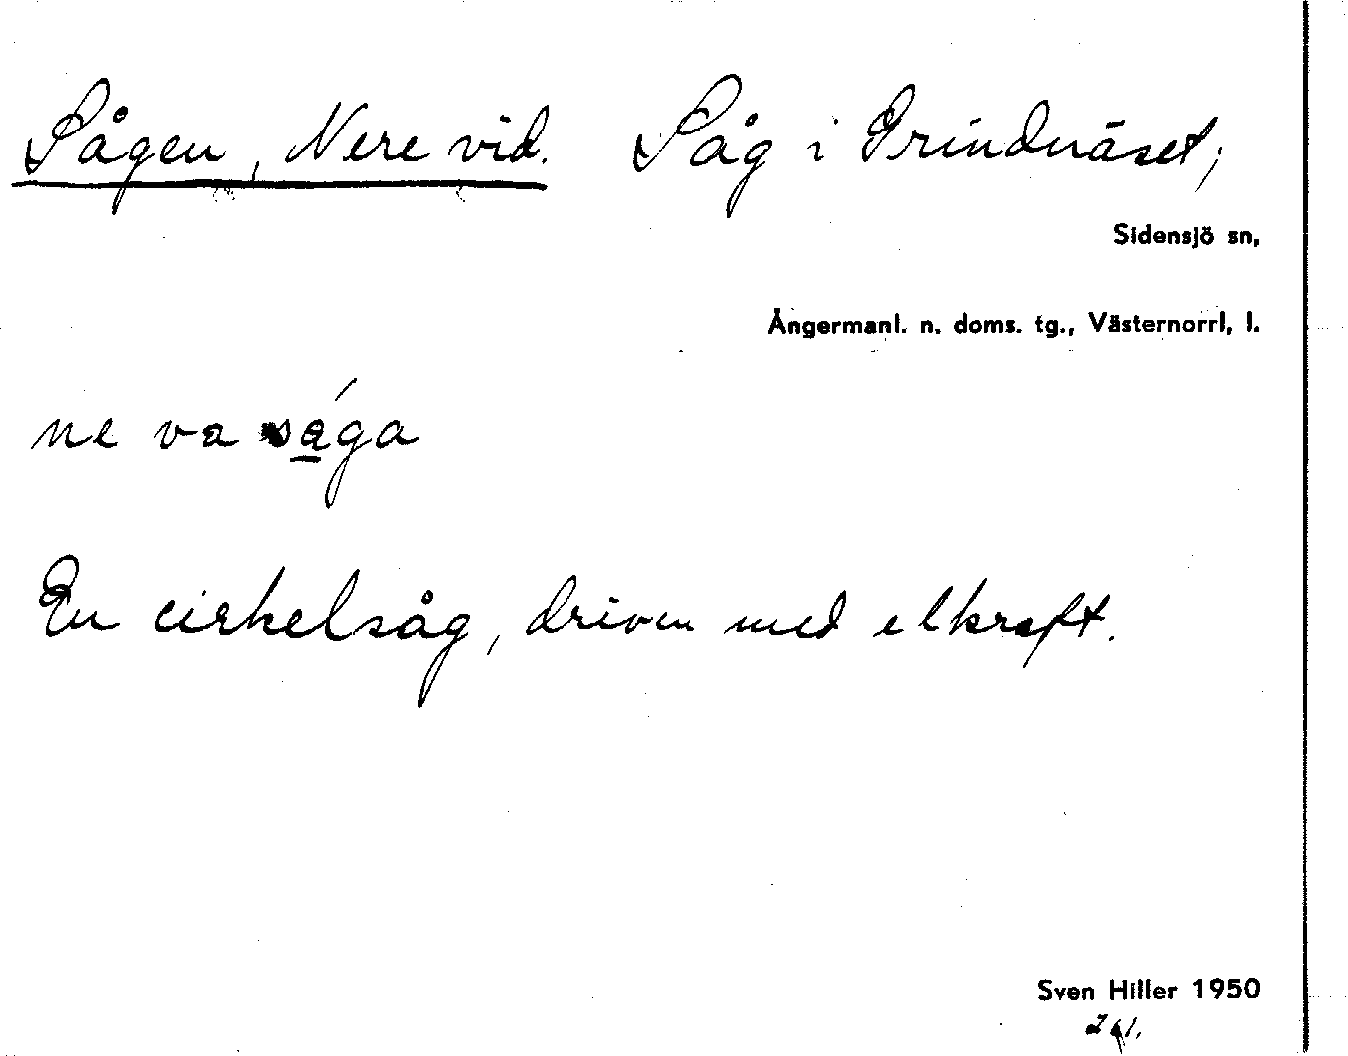 Sågen, Nere vid. Såg i Grindnäset;
Sidensjö sn,
Ångermanl. n. doms. tg., Västernorrl. l.
ne va sága
En cirkelsåg, driven med elkraft.
Sven Hiller 1950